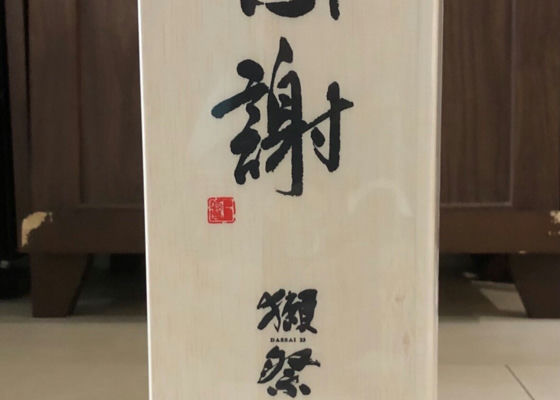 謝
獺
DASSAI 23
祭